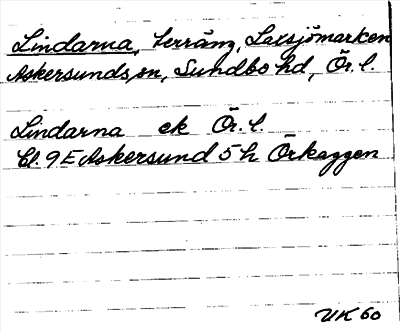 Lindarna, terräng, Laxsjömarken
Askersunds sn, Sundbo hd, Ör. l.
Lindarna ek Ör. l.
Bl. 9E Askersund 5h Örkaggen
UK 60